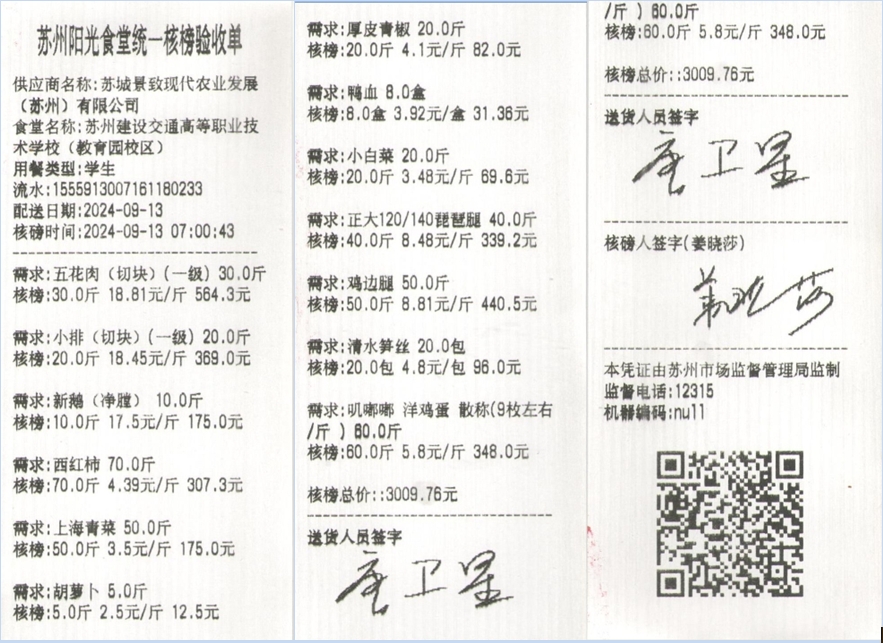 苏州阳光食堂统一核榜验收单
供应商名称:苏城景致现代农业发展
（苏州）有限公司
食堂名称:苏州建设交通高等职业技
术学校（教育园校区）
用餐类型:学生
流水:1555913007161180233
配送日期:2024-09-13
核磅时间:2024-09-13 07:00:43
需求:五花肉（切块）(一级) 30.0斤
核榜:30.0斤 18.81元/斤 564.3元
需求:小排（切块）(一级) 20.0斤
核榜:20.0斤 18.45元/斤 369.0元
需求:新鹅（净膛） 10.0斤
核榜:10.0斤 17.5元/斤 175.0元
需求:西红柿 70.0斤
核榜:70.0斤 4.39元/斤 307.3元
需求:上海青菜 50.0斤
核榜:50.0斤 3.5元/斤 175.0元
需求:胡萝卜 5.0斤
核榜:5.0斤 2.5元/斤 12.5元
需求:厚皮青椒 20.0斤
核榜:20.0斤 4.1元/斤 82.0元
需求:鸭血 8.0盒
核榜:8.0盒 3.92元/盒 31.36元
需求:小白菜 20.0斤
核榜:20.0斤 3.48元/斤 69.6元
需求:正大120/140琵琶腿 40.0斤
核榜:40.0斤 8.48元/斤 339.2元
需求:鸡边腿 50.0斤
核榜:50.0斤 8.81元/斤 440.5元
需求:清水笋丝 20.0包
核榜:20.0包 4.8元/包 96.0元
需求:叽嘟嘟 洋鸡蛋 散称(9枚左右
/斤 ) 60.0斤
核榜:60.0斤 5.8元/斤 348.0元
核榜总价::3009.76元
送货人员签字
唐卫星
/斤 ) 60.0斤
核榜:60.0斤 5.8元/斤 348.0元
核榜总价::3009.76元
送货人员签字
唐卫星
核磅人签字(姜晓莎)
姜晓莎
本凭证由苏州市场监督管理局监制
监督电话:12315
机器编码:null